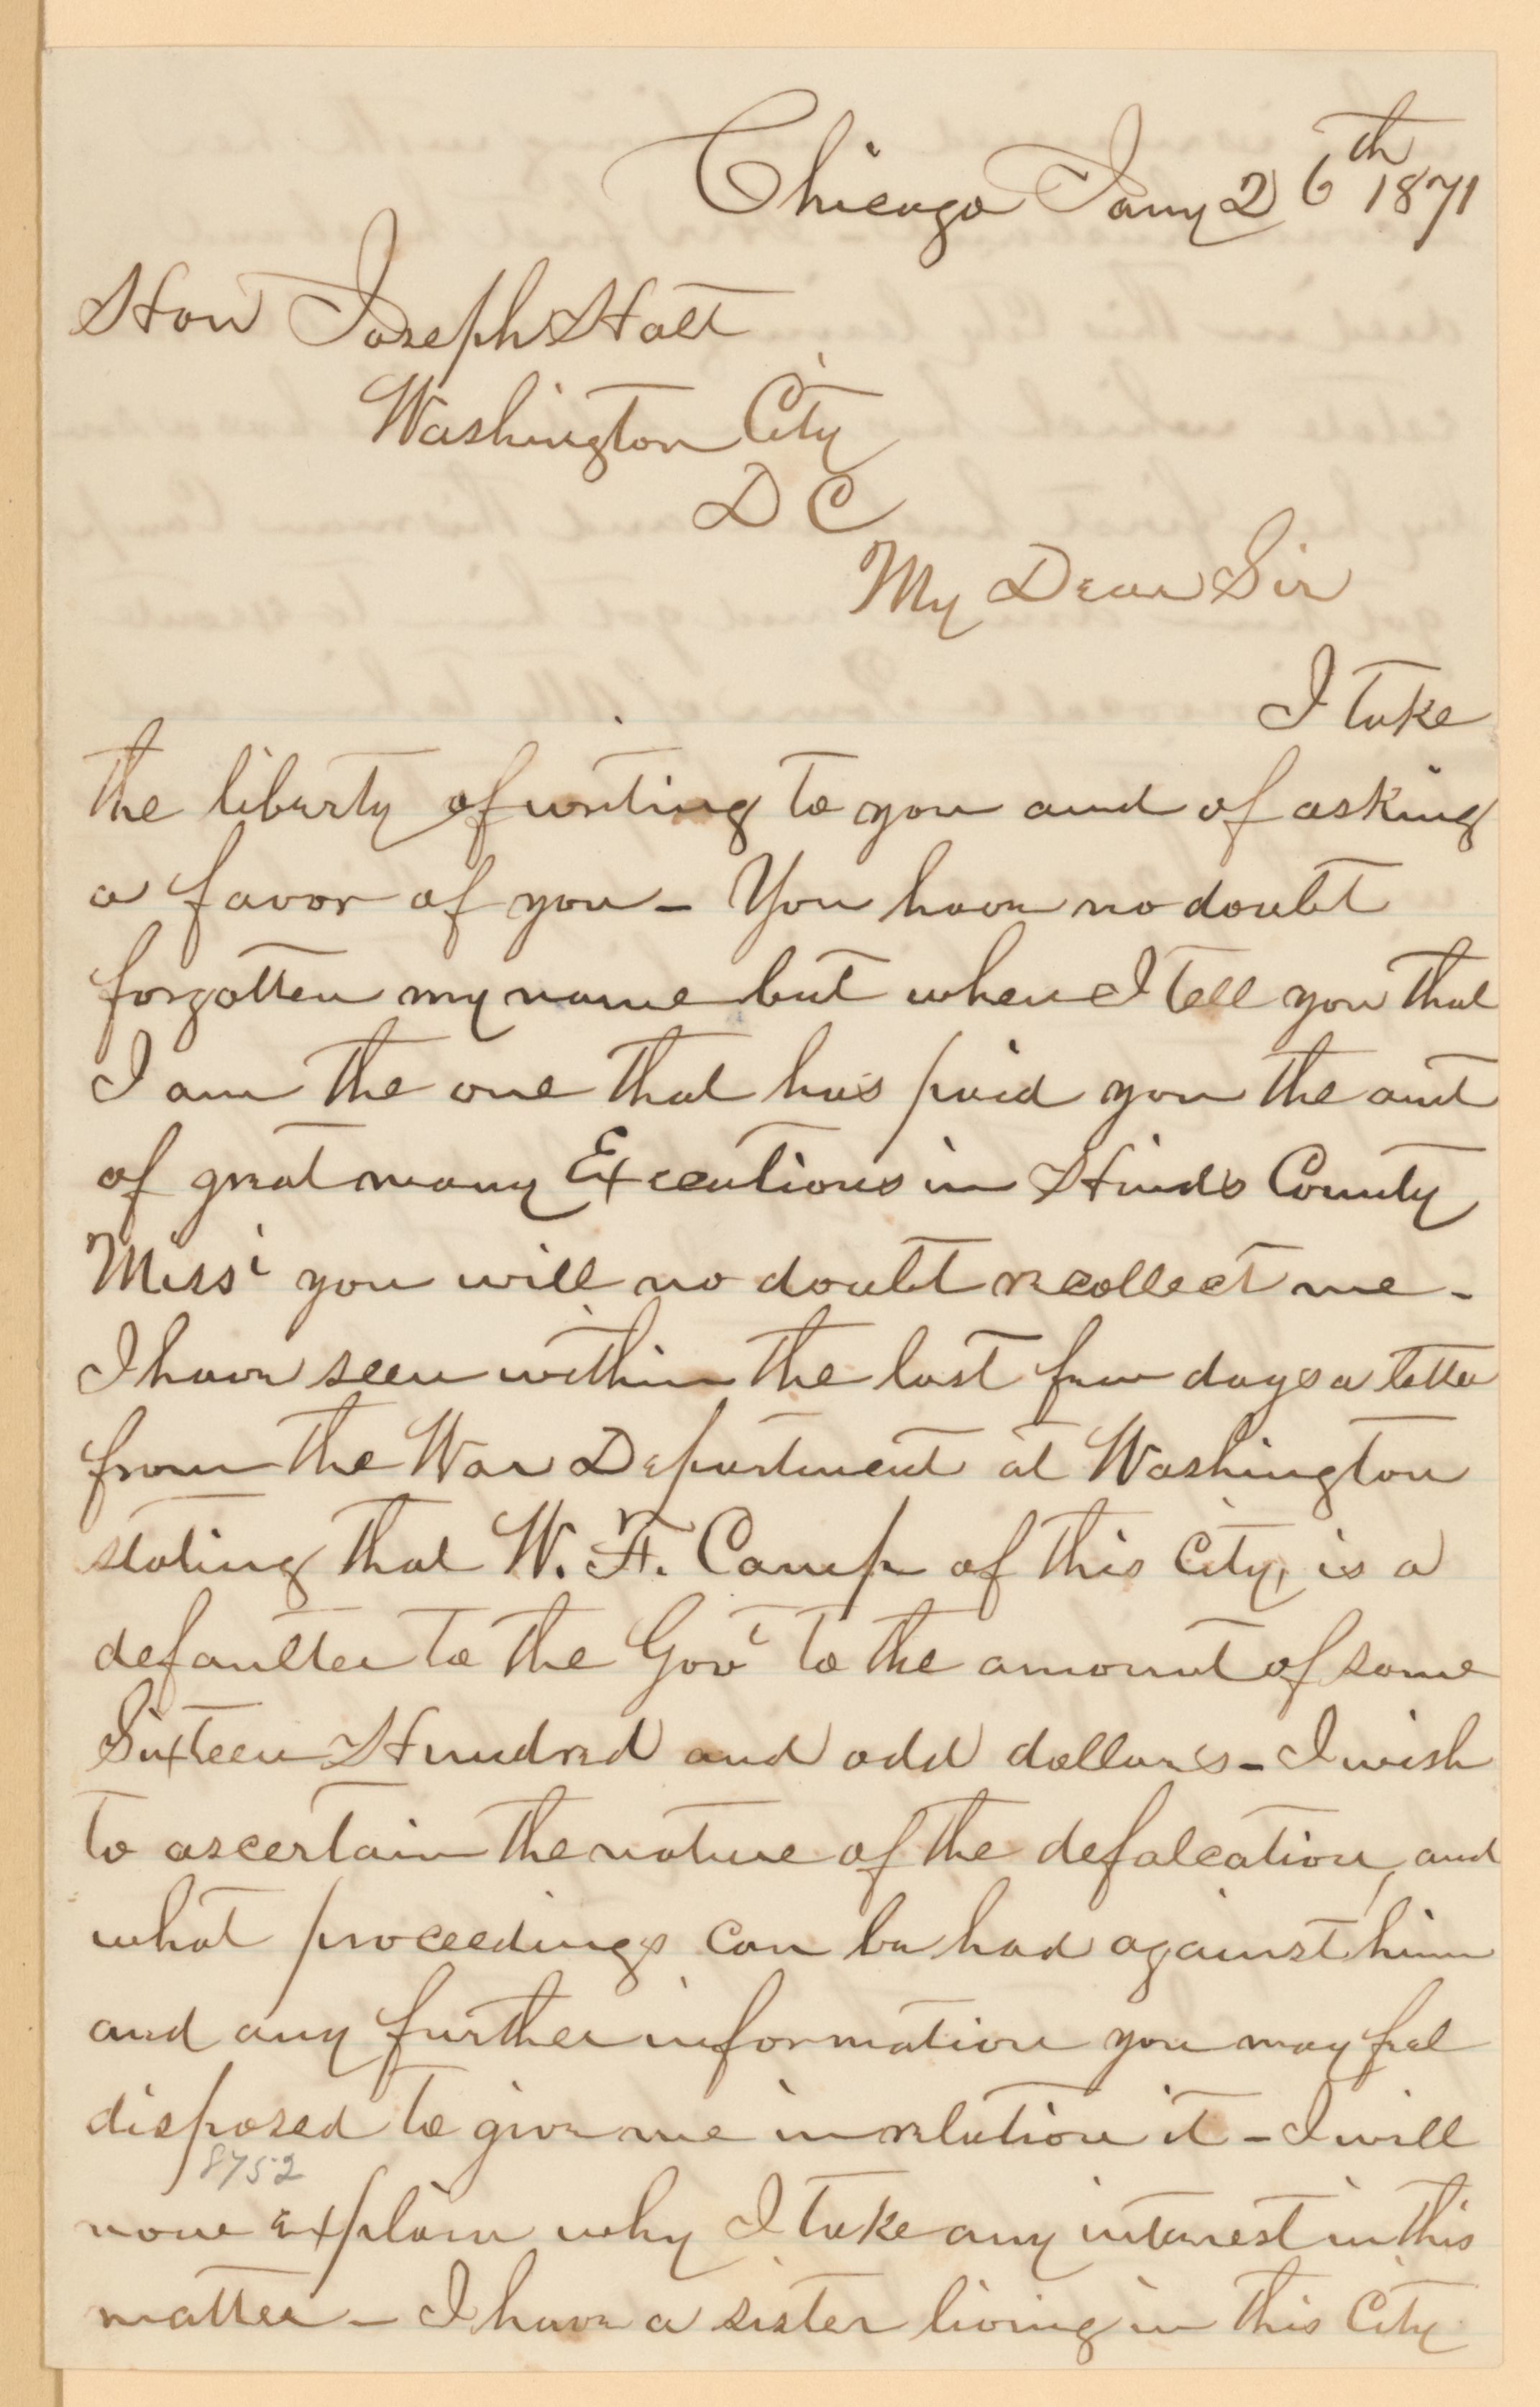 Chicago Jany 26th 1871
Hon Joseph Holt
Washington City
D C
My Dear Sir
I take
the liberty of writing to you and of asking
a favor of you – You have no doubt
forgotten my name but when I tell you that
I am the one that has paid you the amt
of great many Executions in Hinds County
Missi you will no doubt recollect me –
I have seen within the last few days a letter
from the War Department at Washington
stating that W. F. Camp of this City, is a
defaulter to the Govt to the amount of some
Sixteen Hundred and odd dollars – I wish
to ascertain the nature of the defalcation, and
what proceedings can be had against him
and any further information you may feel
disposed to give me in relation it – I will
8752
now explain why I take any interest in this
matter – I have a sister living in this City